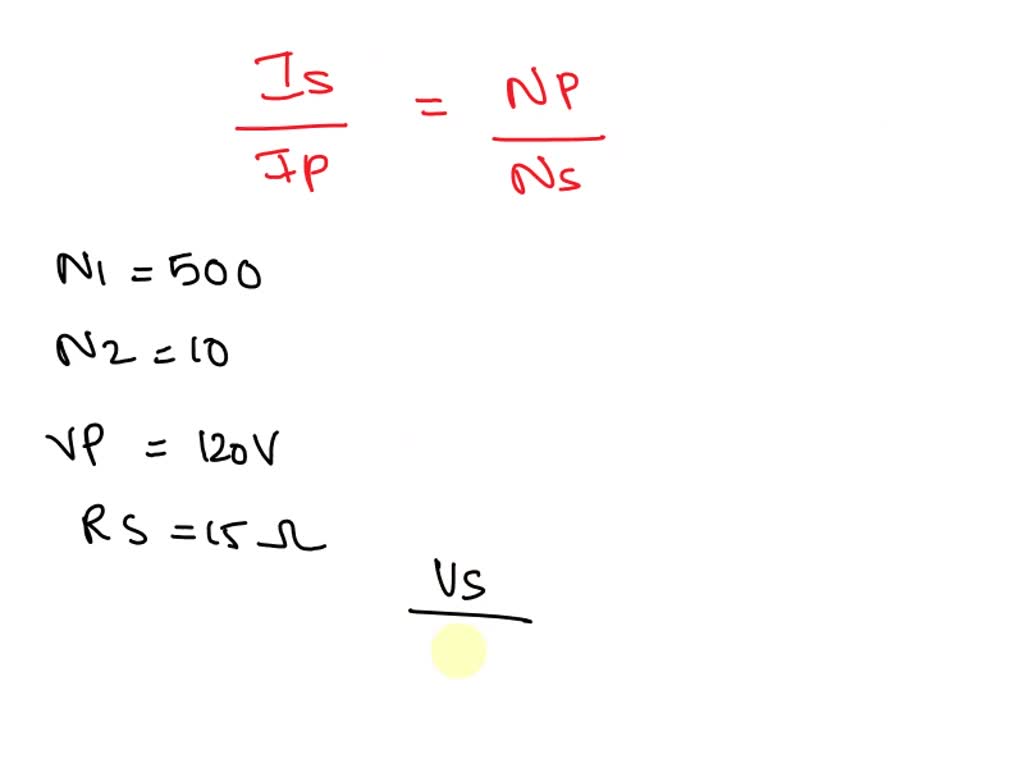 Is = Np
Ip Ns
N1 = 500
N2 = 10
VP = 120V
RS = 15 Ω
VS